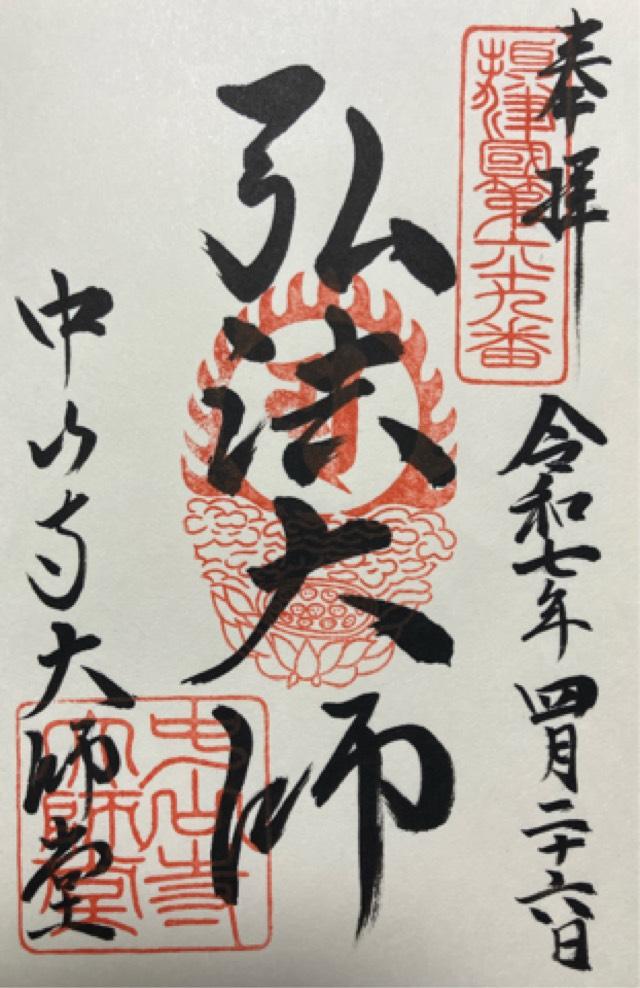 奉拝
摂津國第六十九番
令和七年 四月二十六日
弘法大師
中山寺大師堂
中山寺
大師堂